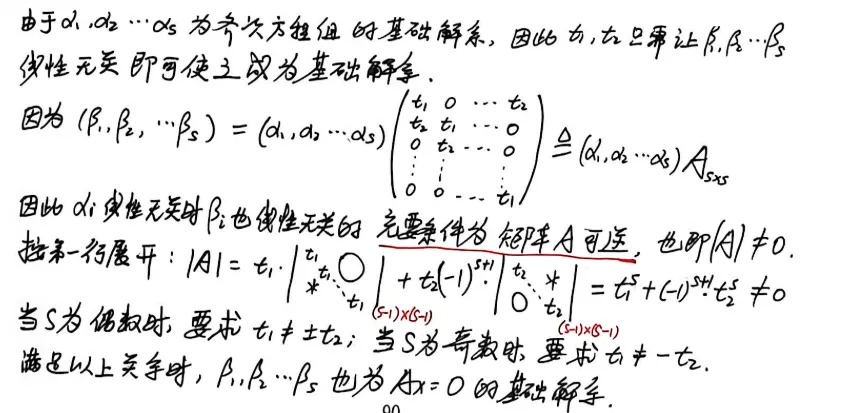 由于α₁,α₂…αs 为齐次方程组的基础解系, 因此 t₁,t₂只需让β₁,β₂…βs
线性无关即可使之成为基础解系.
因为 (β₁,β₂,…βs) = (α₁,α₂…αs) ( t₁ 0 … t₂
t₂ t₁ … 0
0 t₂ … 0
⋮ ⋮ ⋮
0 0 … t₁ ) ≜ (α₁,α₂…αs) A s×s
因此 αi 线性无关时βi也线性无关的 充要条件为 矩阵A可逆, 也即|A| ≠ 0.
按第一行展开: |A| = t₁·| t₁ t₁ ⋱ t₁ 0 * | (s-1)×(s-1) + t₂(-1)^(s+1)·| t₂ ⋱ t₂ * 0 | (s-1)×(s-1) = t₁^s + (-1)^(s+1)·t₂^s ≠ 0
当S为偶数时, 要求 t₁ ≠ ±t₂; 当S为奇数时, 要求 t₁ ≠ -t₂.
满足以上关系时, β₁,β₂…βs 也为 Ax = 0 的基础解系.
90